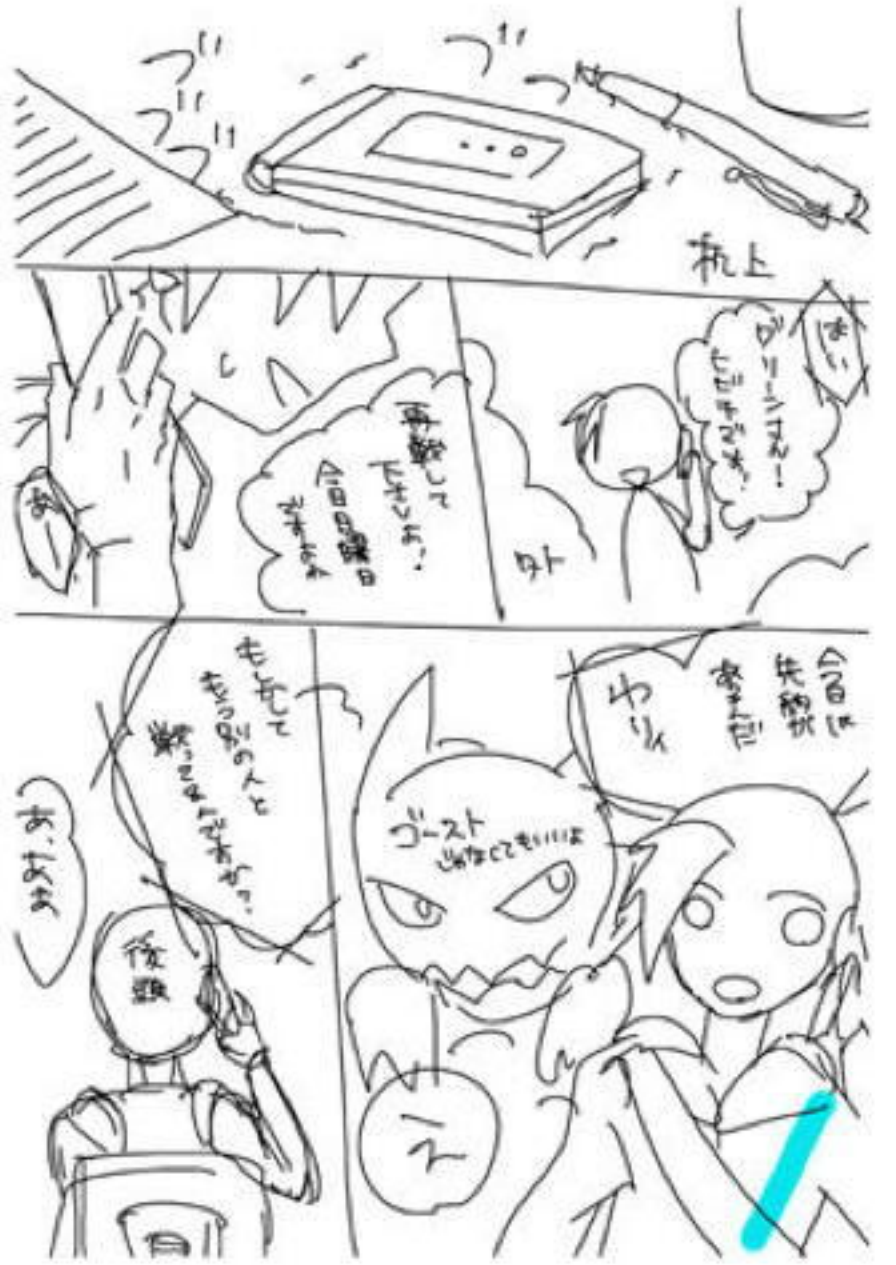 ブブ
ブブ
ブブ
机上
はい
グリーンさん!
ヒビキです。
外
再戦して
下さいよ。
今日日曜日
ですよね
あー
今日は
先約が
あるんだ
わりィ
ゴースト
じゃなくてもいいよ
もしかして
もう別の人と
戦ってるんですか?
あ、ああ
後頭